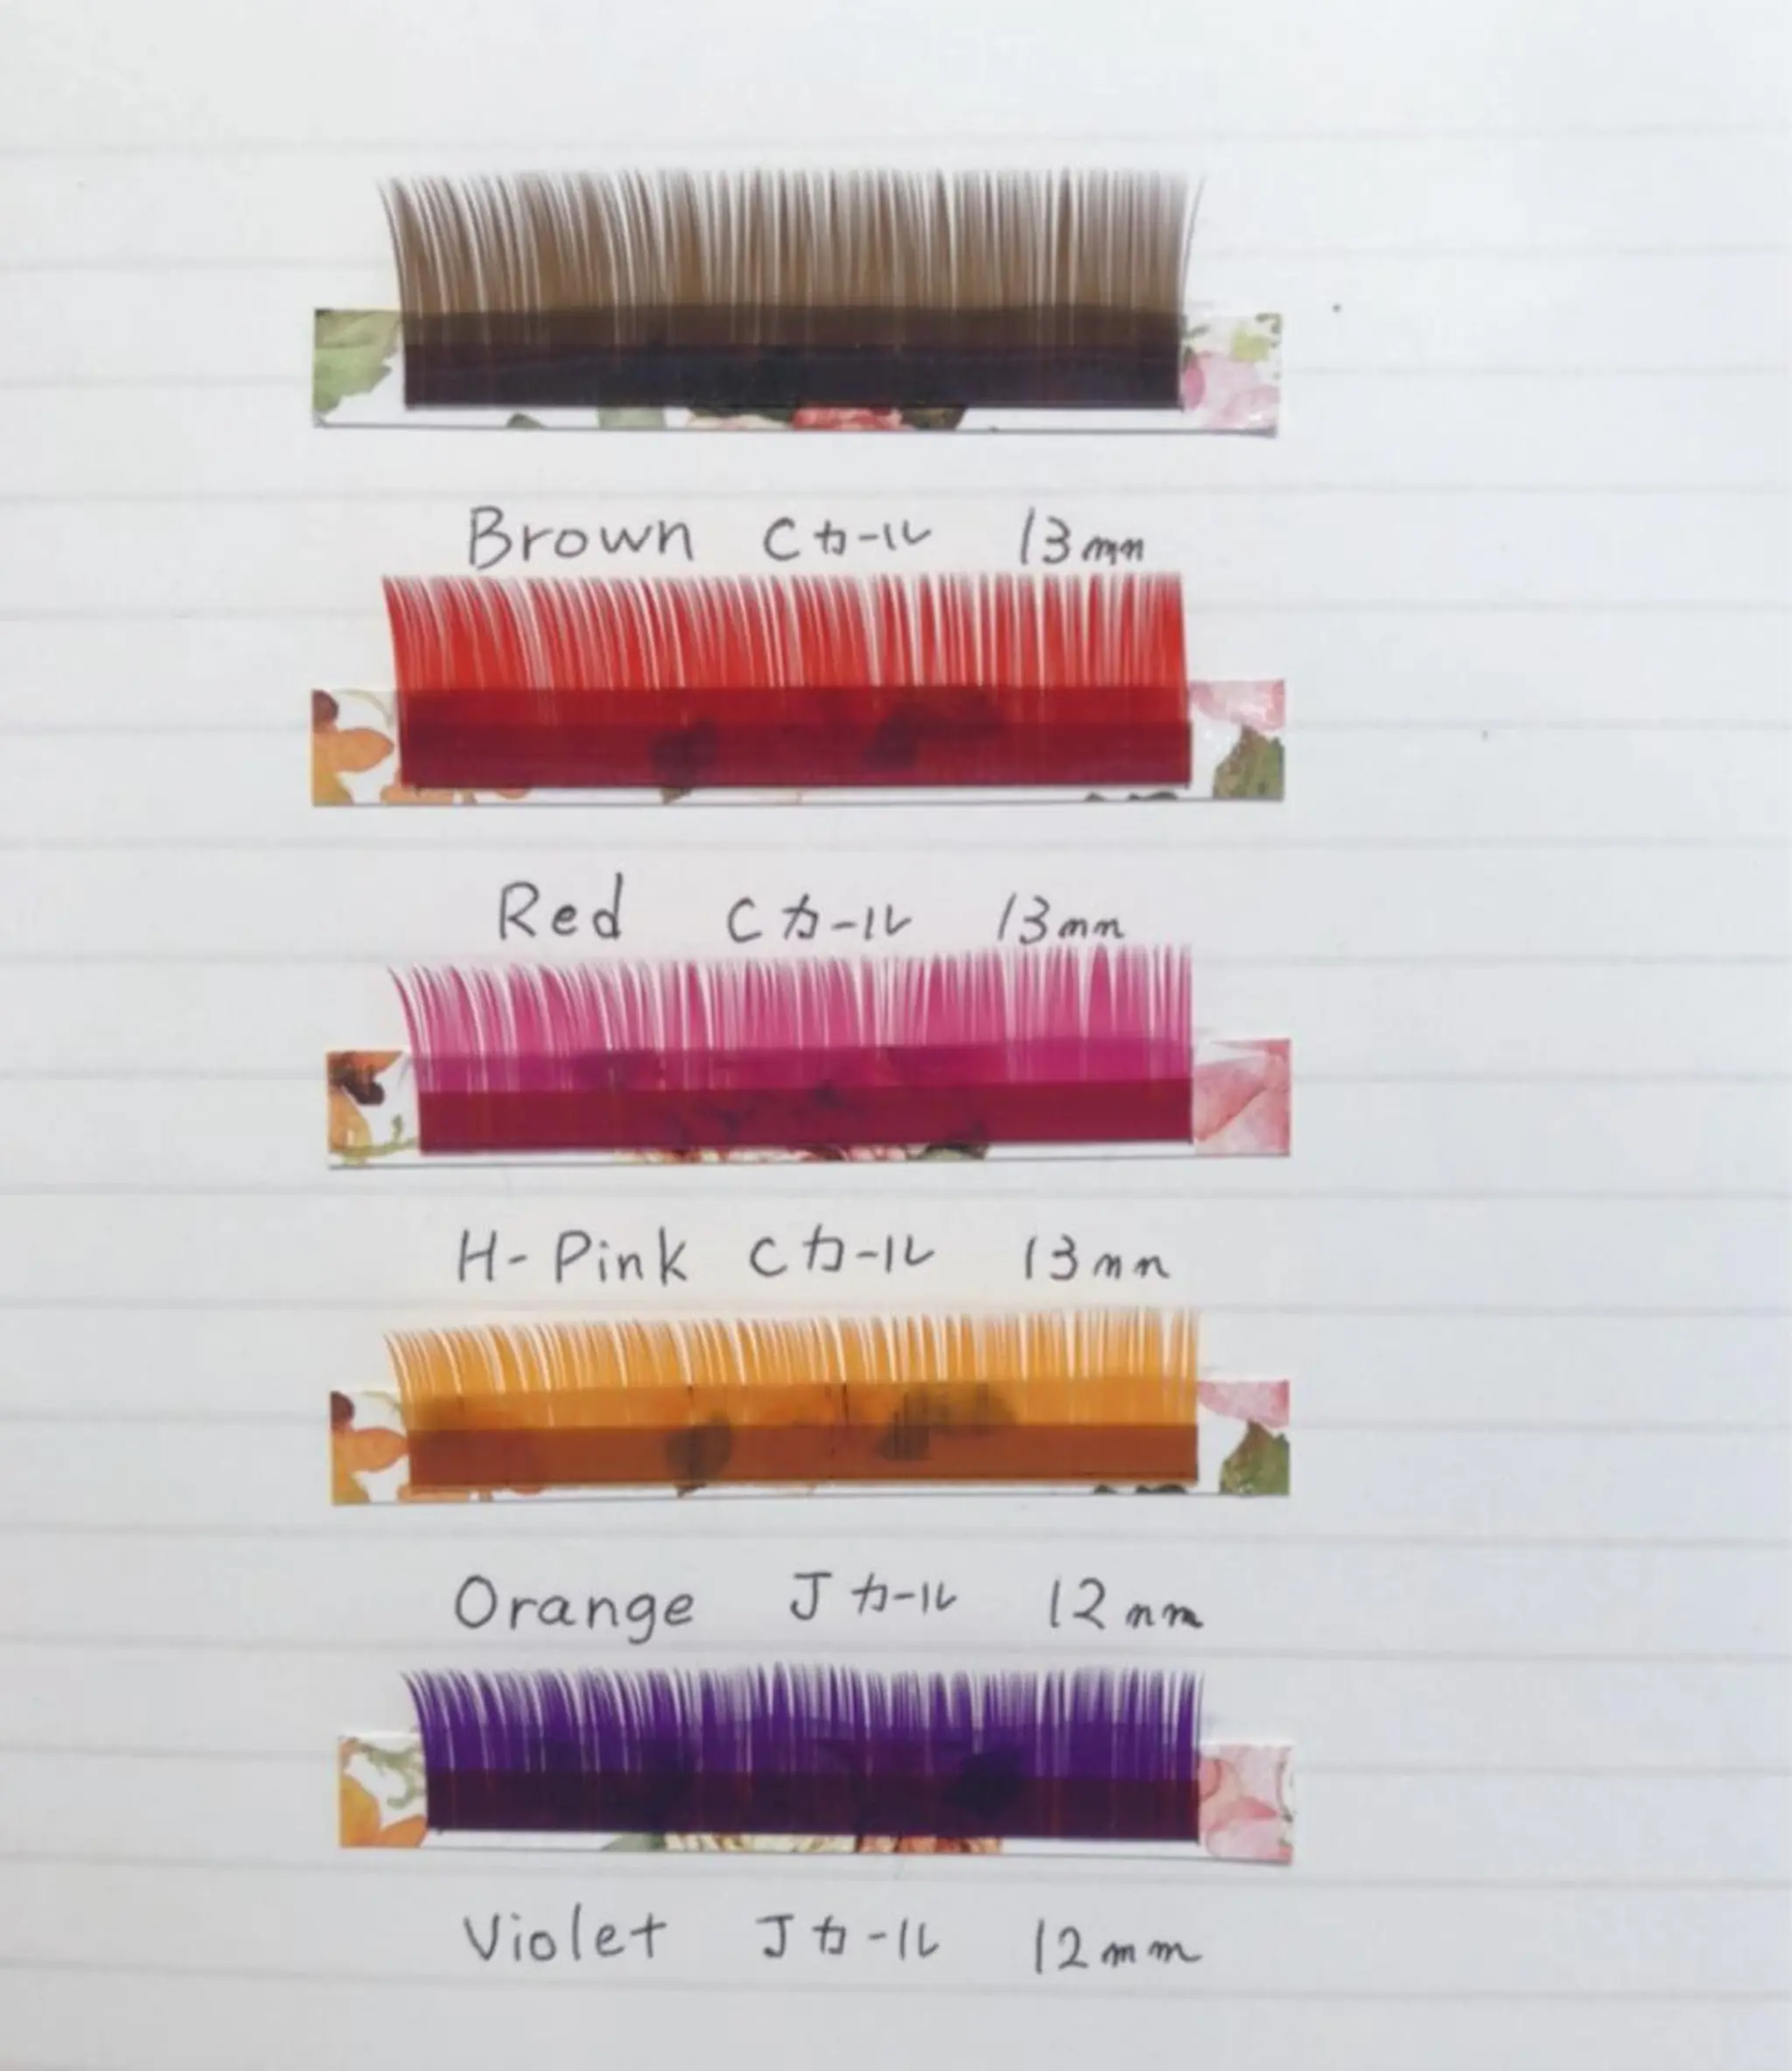 Brown Cカール 13mm
Red Cカール 13mm
H-Pink Cカール 13mm
Orange Jカール 12mm
Violet Jカール 12mm